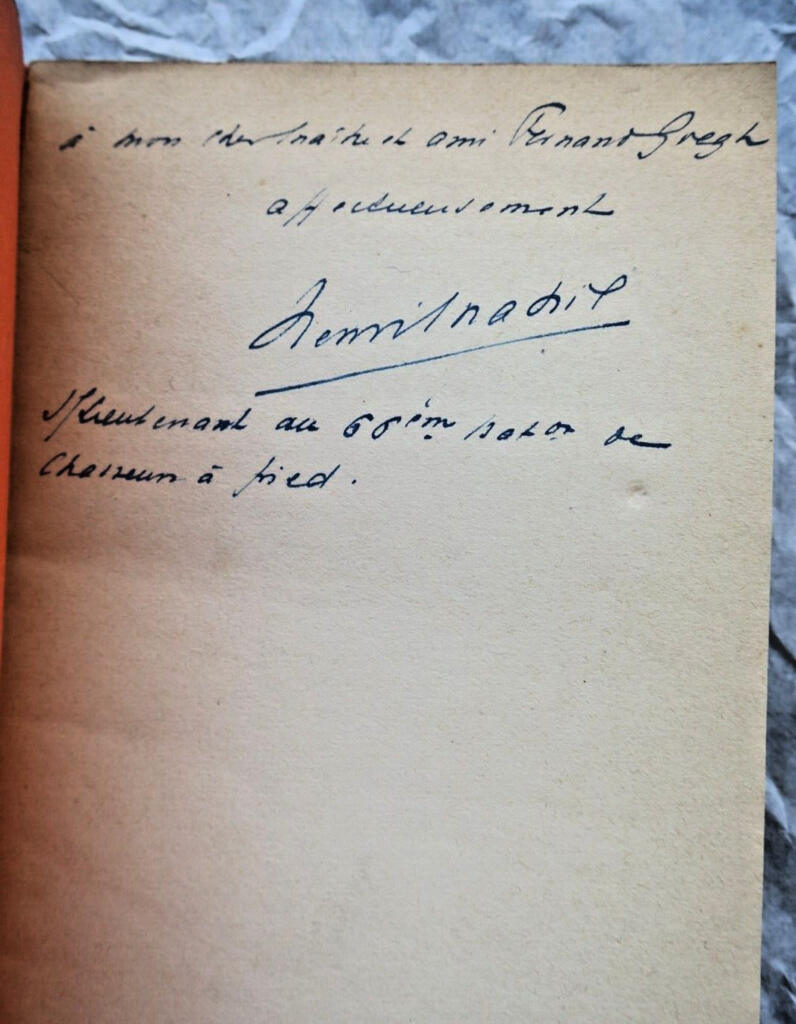 à mon cher maître et ami Fernand Gregh
affectueusement
Henri
S/Lieutenant au 66ème Baton de
Chasseurs à pied.